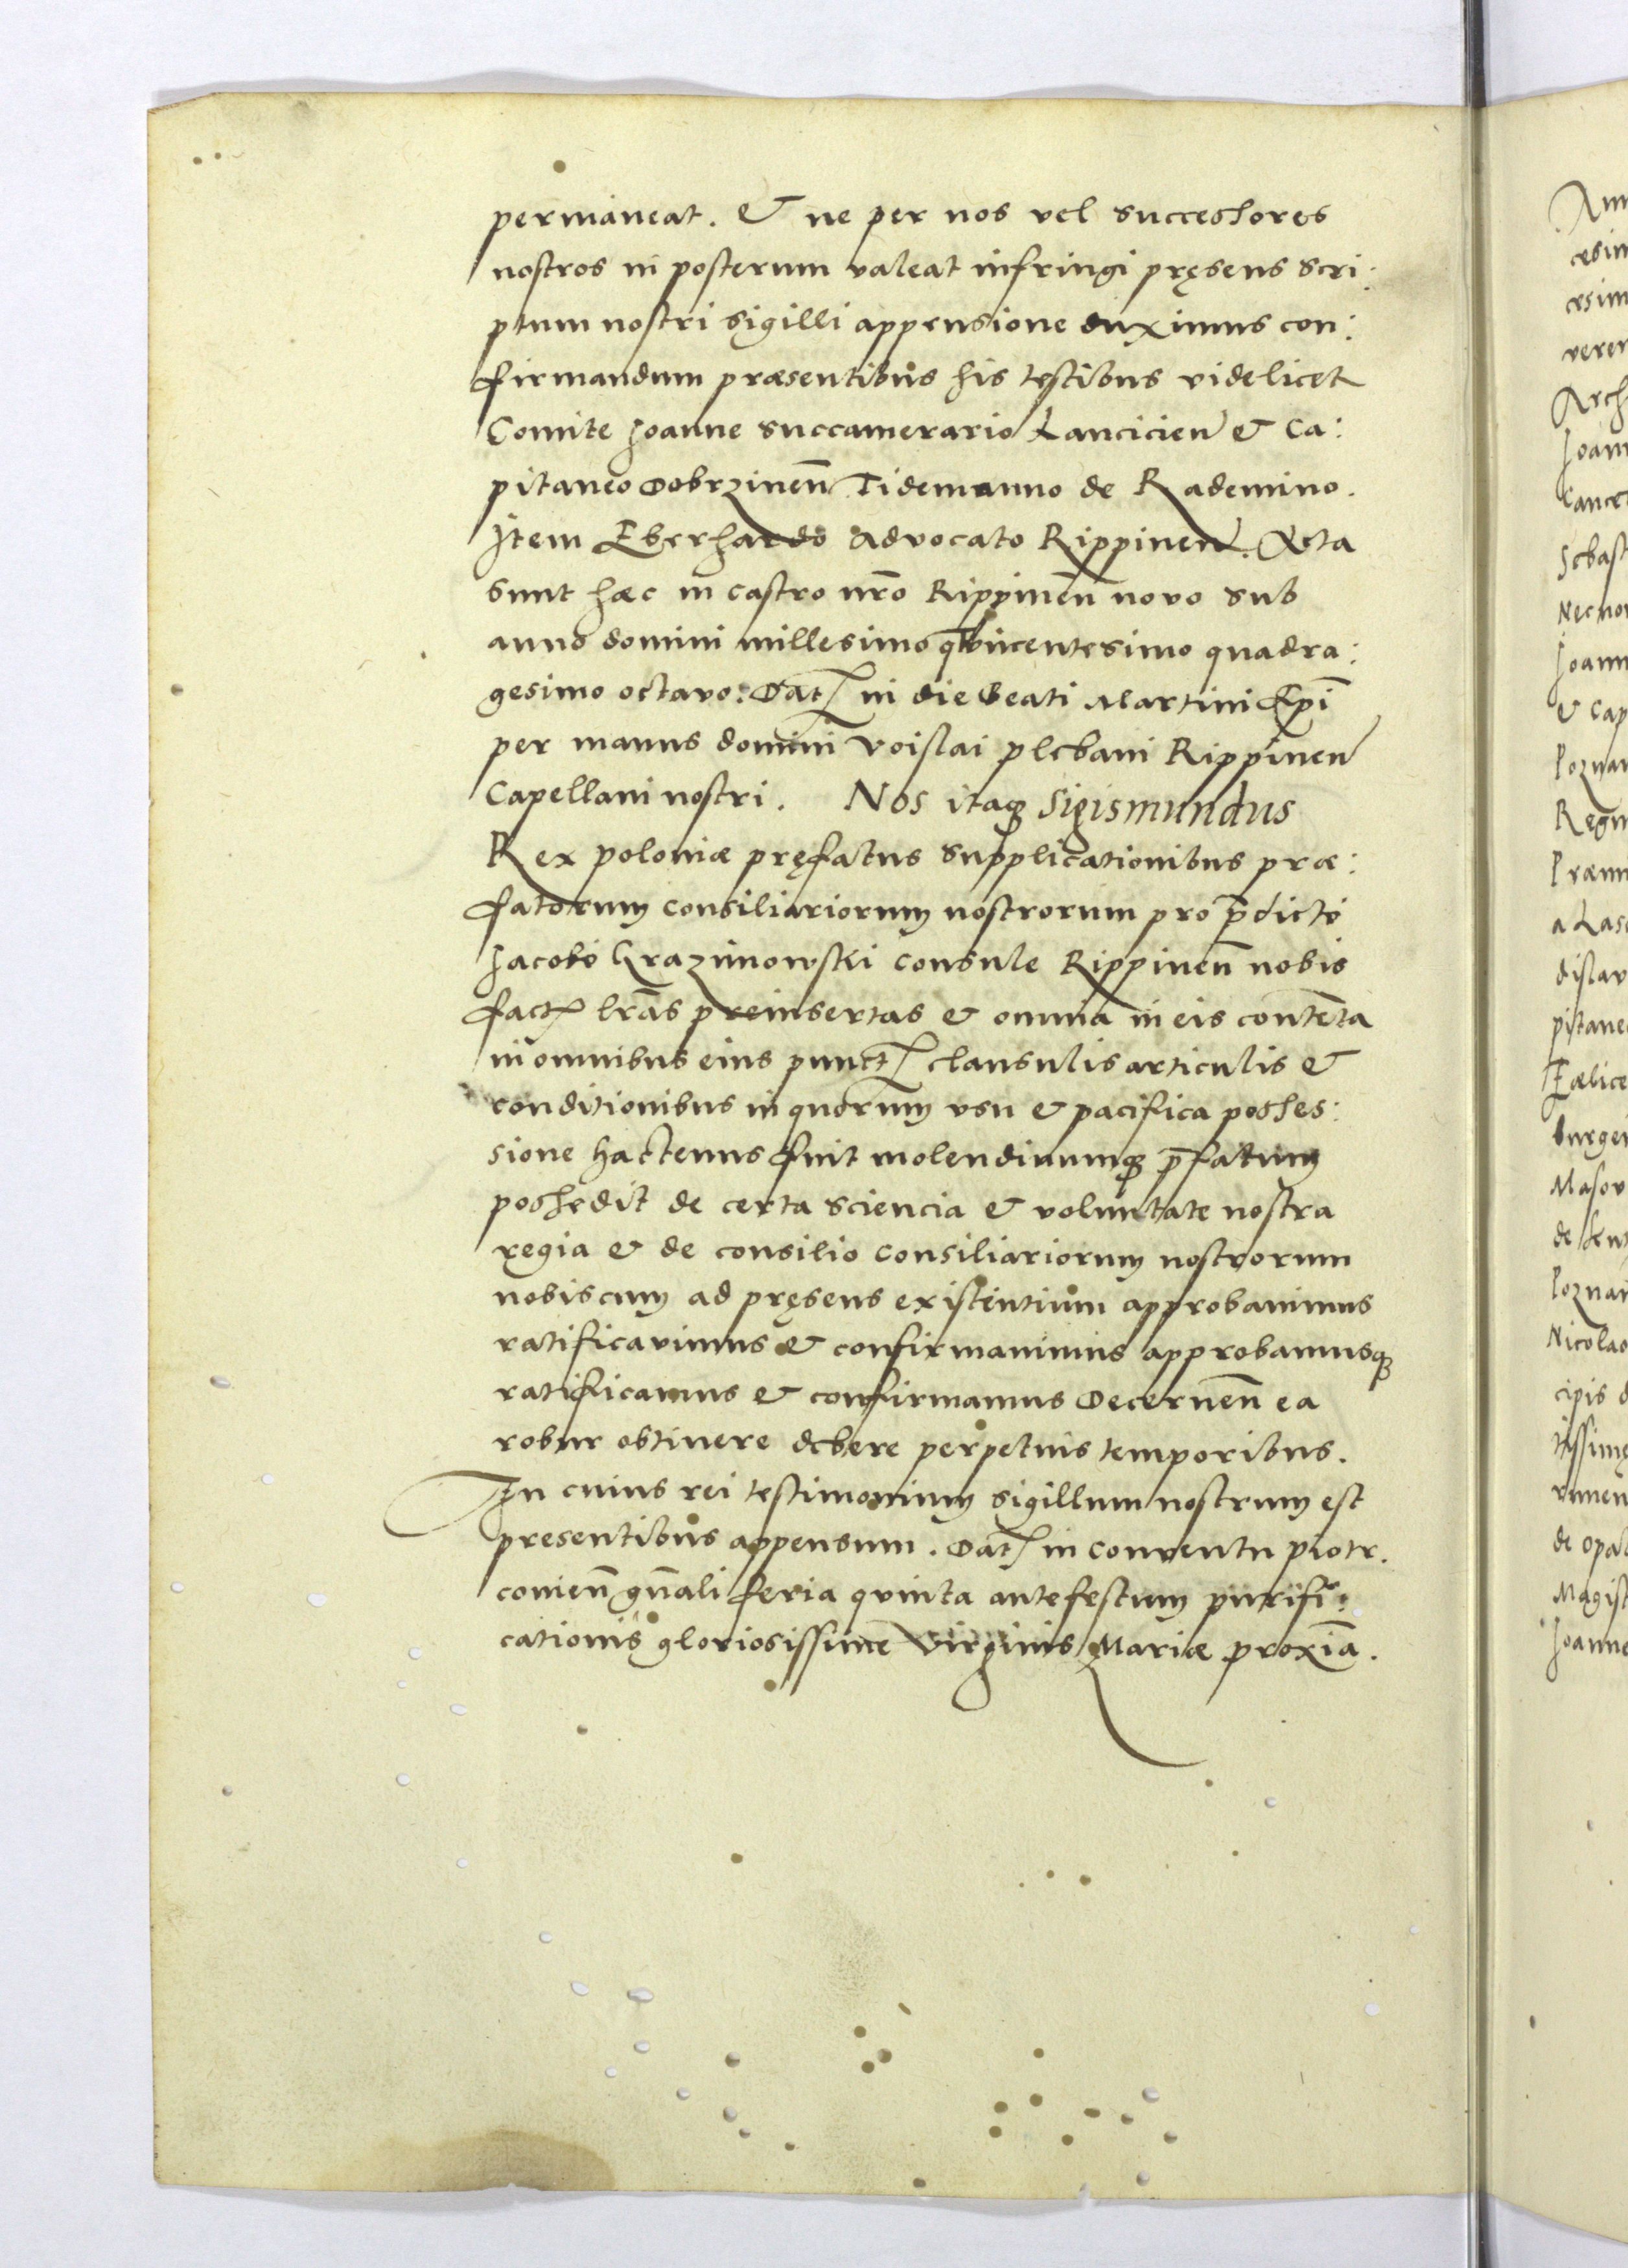 permaneat. & ne per nos vel successores
nostros in posterum valeat infringi pręsens scri:
ptum nostri sigilli appensione duximus con:
firmandum præsentibus his testibus videlicet
Comite Joanne succamerario Lancicien̄ & Ca:
pitaneo Dobrzinen̄ Tidemanno de Rademino.
Item Eberhardo Advocato Rippinen̄. Acta
sunt hæc in castro nr̄o Rippinen̄ novo sub
anno domini millesimo incentesimo quadra:
gesimo octavo: Dat̄ in die Beati Martini Ep̄i
per manus domini Voislai plebani Rippinen̄
Capellani nostri. Nos itaq; Sigismundus
Rex poloniæ pręfatus supplicationibus præ:
fatorum consiliariorum nostrorum pro p̄dicto
Jacobo Grazimowski consule Rippinen̄ nobis
fact̄ lr̄as preinsertas & omnia in eis contenta
in omnibus eius punct̄ clausulis articulis &
conditionibus in quorum usu & pacifica posses:
sione hactenus fuit molendinumq; p̄fatum
possedit de certa sciencia & voluntate nostra
regia & de consilio consiliariorum nostrorum
nobiscum ad pręsens existentium approbavimus
ratificavimus & confirmavimus approbamusq;
ratificamus & confirmamus Decernen̄ ea
robur obtinere debere perpetuis temporibus.
In cuius rei testimonium sigillum nostrum est
presentibus appensum. Dat̄ in conventu piotr.
covien̄ gn̄ali feria quinta ante festum purifi:
cationis gloriosissime Virginis Mariæ proxīa.